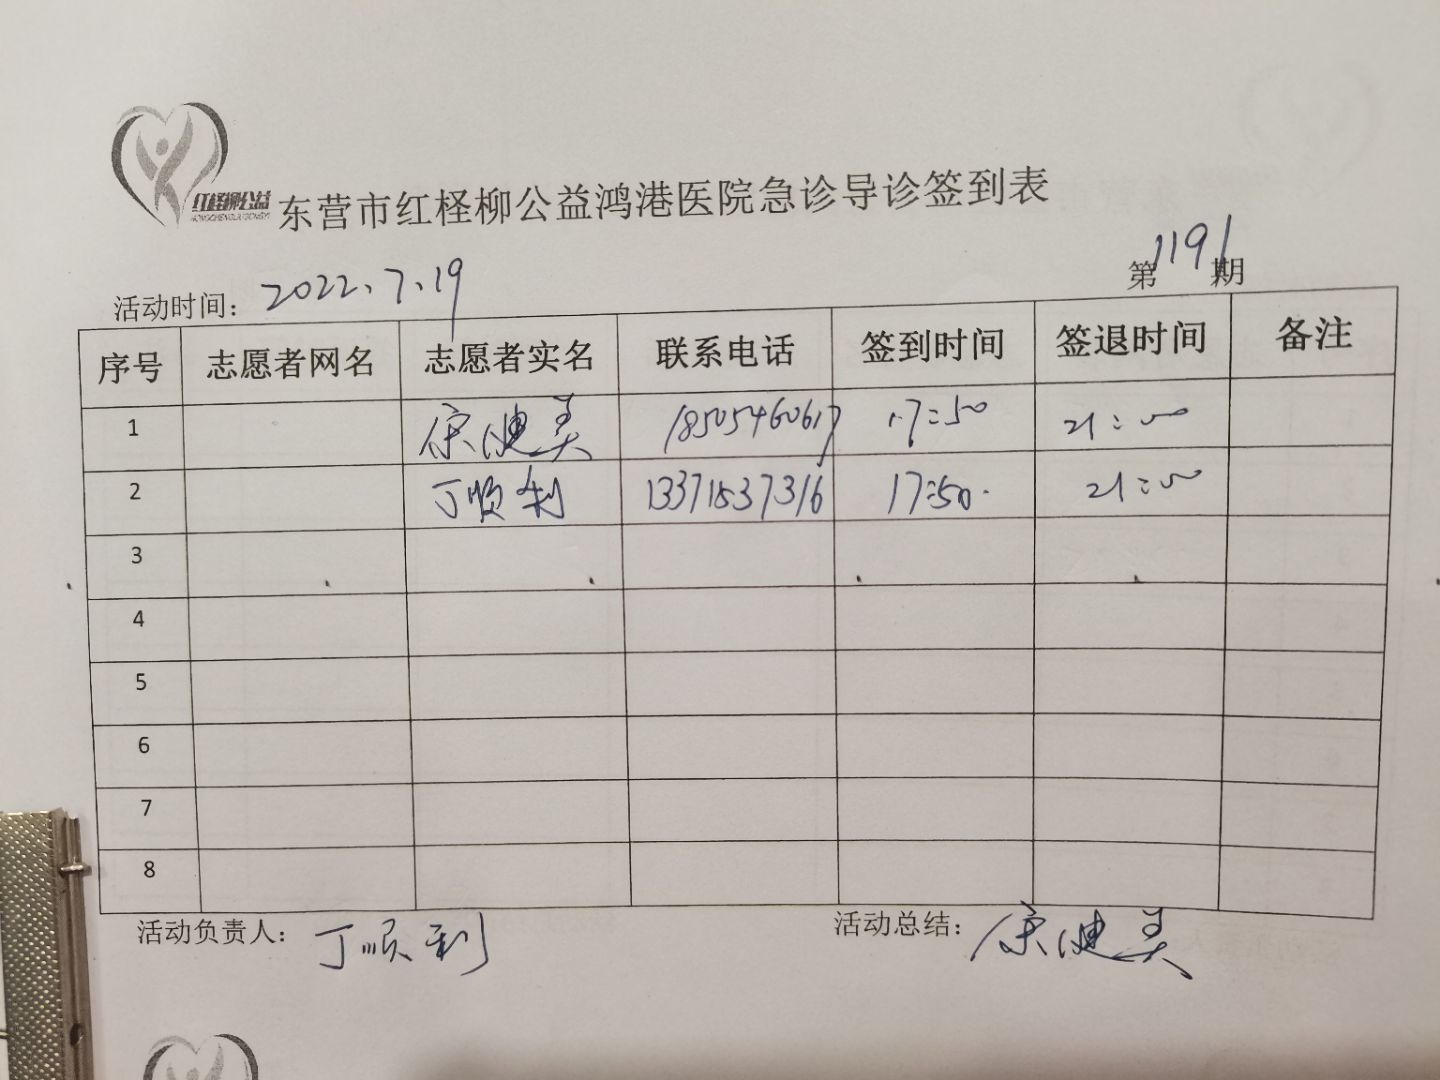 红柽柳公益
HONGCHENGLIUGONGYI
东营市红柽柳公益鸿港医院急诊导诊签到表
活动时间：2022.7.19 第1191期
序号 志愿者网名 志愿者实名 联系电话 签到时间 签退时间 备注
1 宋健美 18505460617 17:50 21:00
2 丁顺利 13371537316 17:50. 21:00
3
4
5
6
7
8
活动负责人：丁顺利 活动总结：宋健美